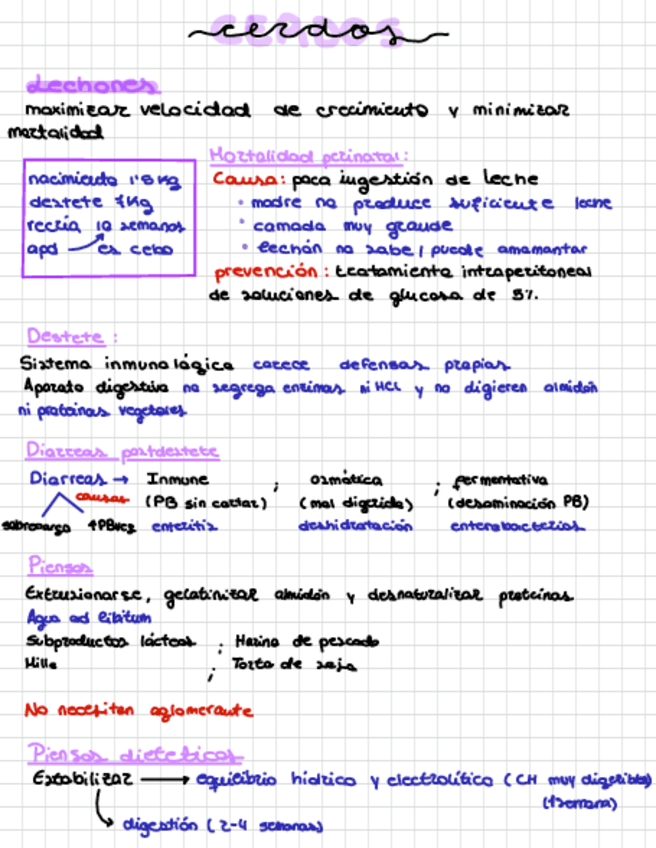 cerdos
Lechones
maximizar velocidad de crecimiento y minimizar
mortalidad
nacimiento 1'8 Kg
destete 7Kg
recría 10 semanas
apd → es cebo
Mortalidad perinatal:
Causa: poca ingestión de leche
• madre no produce suficiente leche
• camada muy grande
• lechón no sabe / puede amamantar
prevención: tratamiento intraperitoneal
de soluciones de glucosa de 5%.
Destete:
Sistema inmunológico carece defensas propias
Aparato digestivo no segrega enzimas ni HCl y no digieren almidón
ni proteínas vegetales
Diarreas postdestete
Diarreas → Inmune ; osmótica ; fermentativa
causas (PB sin cortar) (mal digerida) (desaminación PB)
sobrecarga ↑PBveg enteritis deshidratación enterobacterias
Piensos
Extrusionarse, gelatinizar almidón y desnaturalizar proteínas
Agua ad libitum
Subproductos lácteos ; Harina de pescado
Mille ; Torta de soja
No necesitan aglomerante
Piensos dieteticos
Estabilizar → equilibrio hídrico y electrolítico (CH muy digeribles)
(1 semana)
digestión (2-4 semanas)